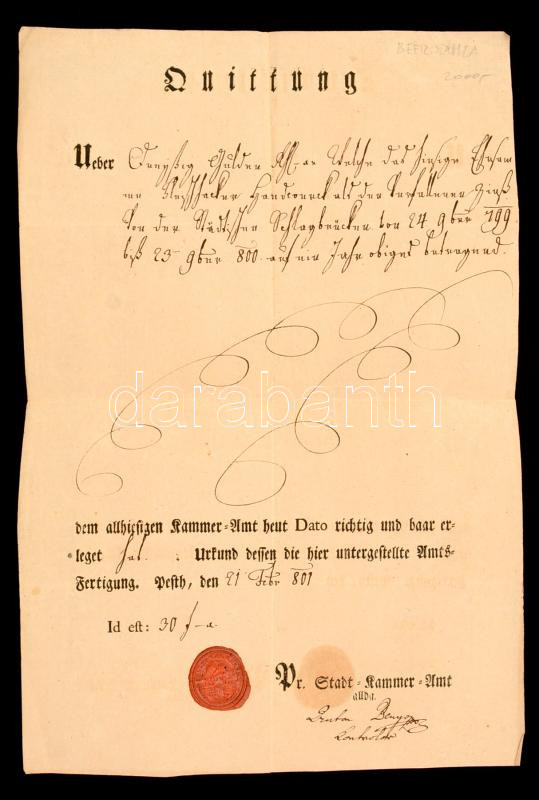 2000,-
Quittung
Ueber Dreyßig Gulden Welche das hiesige
Handwerck als den Verfallenen Zinß
Von der Städtischen Schlagbrücken von 24 9ber 799
biß 23 9ber 800 auf ein Jahr obiges betragend.
darabanth
dem allhiesigen Kammer-Amt heut Dato richtig und baar er-
leget hat. Urkund dessen die hier untergestellte Amts-
Fertigung. Pesth, den 21 Febr 801
Id est: 30 f
Pr. Stadt-Kammer-Amt
allda.
Controlor